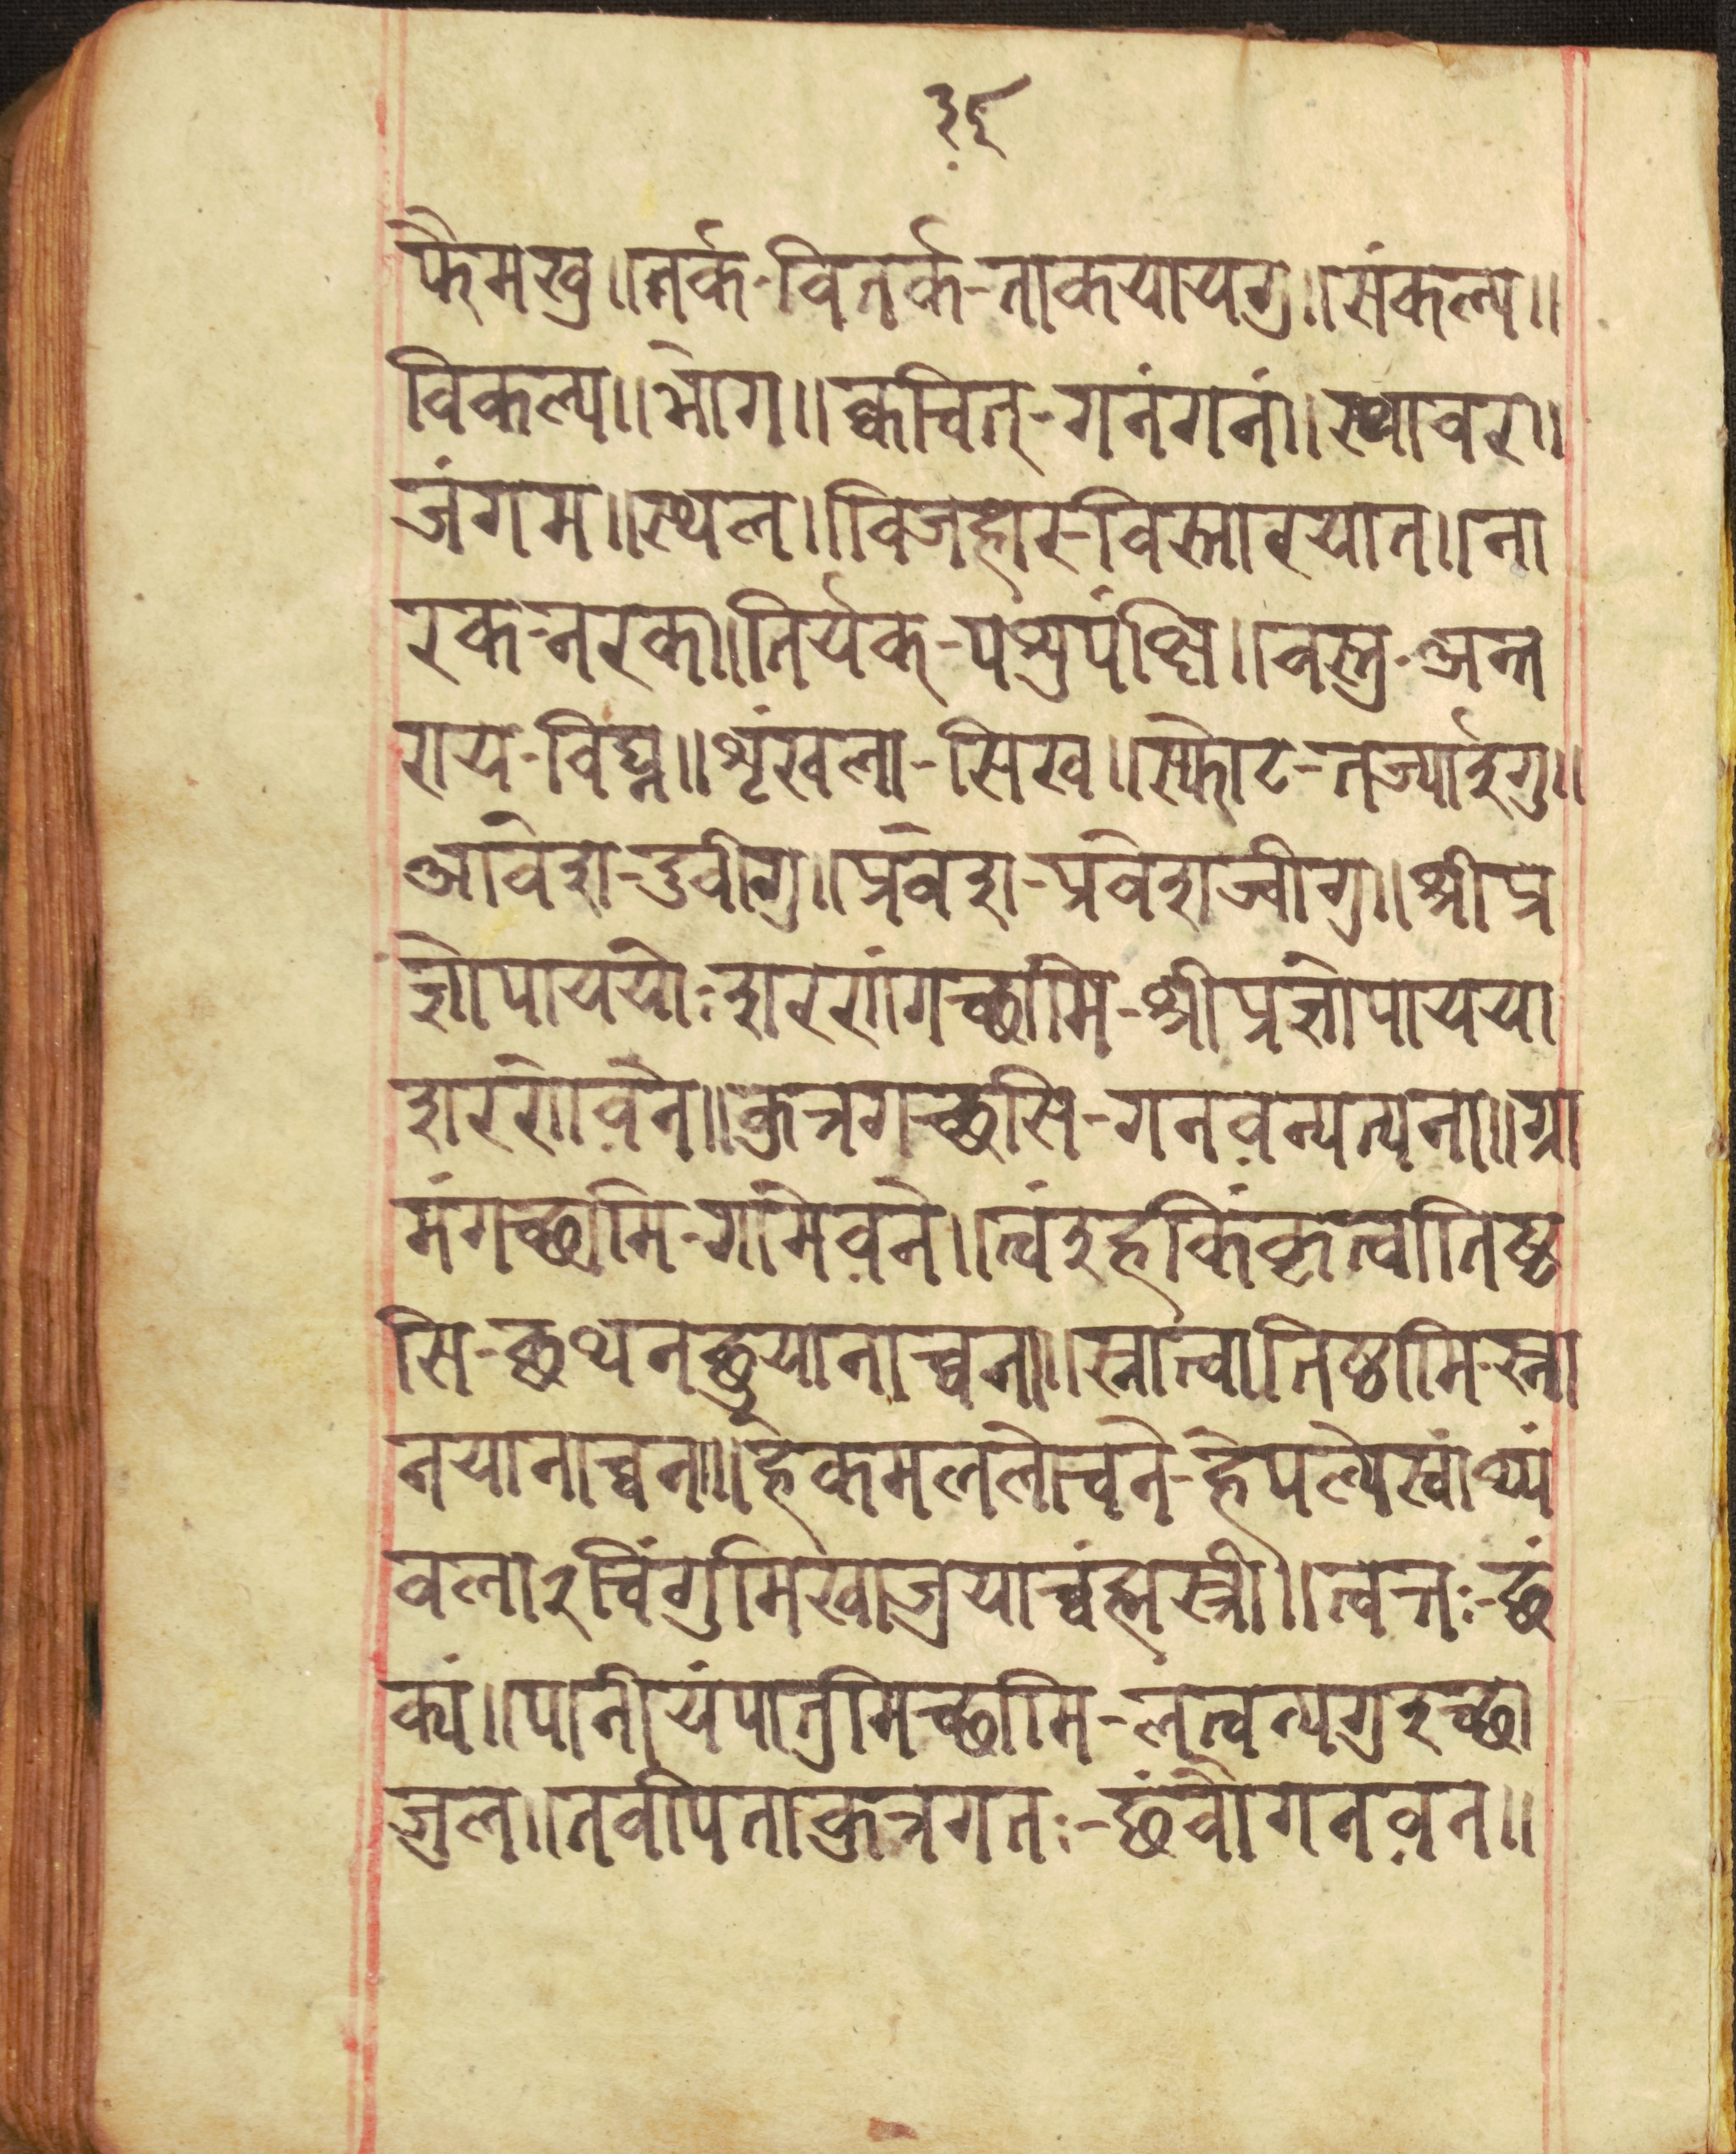 ३९
फैमखु॥तर्क-वितर्क-ताकयायगु॥संकल्प॥
विकल्प॥भाग॥क्वचित्-गनंगनं॥स्थावर॥
जंगम॥स्थल॥विजहार-विस्तारयात॥ना
रक-नरक॥तिर्यक्-पंशुपंक्षि॥वस्तु-अन्त
राय-विघ्न॥शृंखला-सिख॥स्फोट-तर्ज्यारगु॥
आवेश-दुवीगु॥प्रवेश-प्रवेशज्वीगु॥श्रीप्र
ज्ञोपाययोःशरणंगच्छामि-श्रीप्रज्ञोपायया
शरणेवने॥कुत्रगच्छसि-गनवन्यत्यना॥ग्रा
मंगच्छामि-गामेवने॥त्वंइहकिंकृत्वातिष्ठ
सि-छथनछुयानाच्वन॥स्नात्वातिष्ठामि-स्ना
नयानाच्वन॥हेकमललोचने-हेपल्येस्वांथ्यं
वलाःचिंगुमिखाज्रयाच्वंह्मस्त्री॥त्वत्तः-छं
क्यं॥पानीयंपातुमिच्छामि-लत्वन्यगुइच्छा
जुल॥तवपिताकुत्रगतः-छंवौगनवन॥